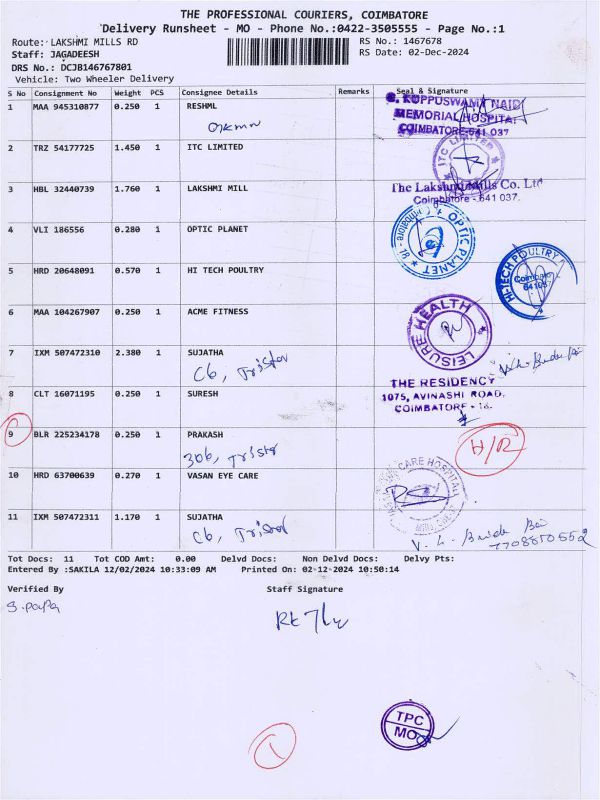 THE PROFESSIONAL COURIERS, COIMBATORE
Delivery Runsheet - MO - Phone No.:0422-3505555 - Page No.:1
Route: LAKSHMI MILLS RD RS No.: 1467678
Staff: JAGADEESH RS Date: 02-Dec-2024
DRS No.: DCJB146767801
Vehicle: Two Wheeler Delivery
S No Consignment No Weight PCS Consignee Details Remarks Seal & Signature
1 MAA 945310877 0.250 1 RESHML
G. KUPPUSWAMY NAIDU
MEMORIAL HOSPITAL
COIMBATORE-641 037
2 TRZ 54177725 1.450 1 ITC LIMITED
ITC LIMITED
3 HBL 32440739 1.760 1 LAKSHMI MILL
The Lakshmi Mills Co. Ltd
Coimbatore - 641 037.
4 VLI 186556 0.280 1 OPTIC PLANET
OPTIC PLANET Coimbatore-18
5 HRD 20648091 0.570 1 HI TECH POULTRY
HI-TECH POULTRY
Coimbatore
6 MAA 104267907 0.250 1 ACME FITNESS
LEISURE HEALTH
7 IXM 507472310 2.380 1 SUJATHA
C6, Tristar
8 CLT 16071195 0.250 1 SURESH
THE RESIDENCY
1075, AVINASHI ROAD,
COIMBATORE - 18.
9 BLR 225234178 0.250 1 PRAKASH
306, Tristar H/R
10 HRD 63700639 0.270 1 VASAN EYE CARE
CARE HOSPITAL
11 IXM 507472311 1.170 1 SUJATHA
C6, Tristar
7708810552
Tot Docs: 11 Tot COD Amt: 0.00 Delvd Docs: Non Delvd Docs: Delvy Pts:
Entered By :SAKILA 12/02/2024 10:33:09 AM Printed On: 02-12-2024 10:50:14
Verified By Staff Signature
S. PaPa
TPC
MO
1